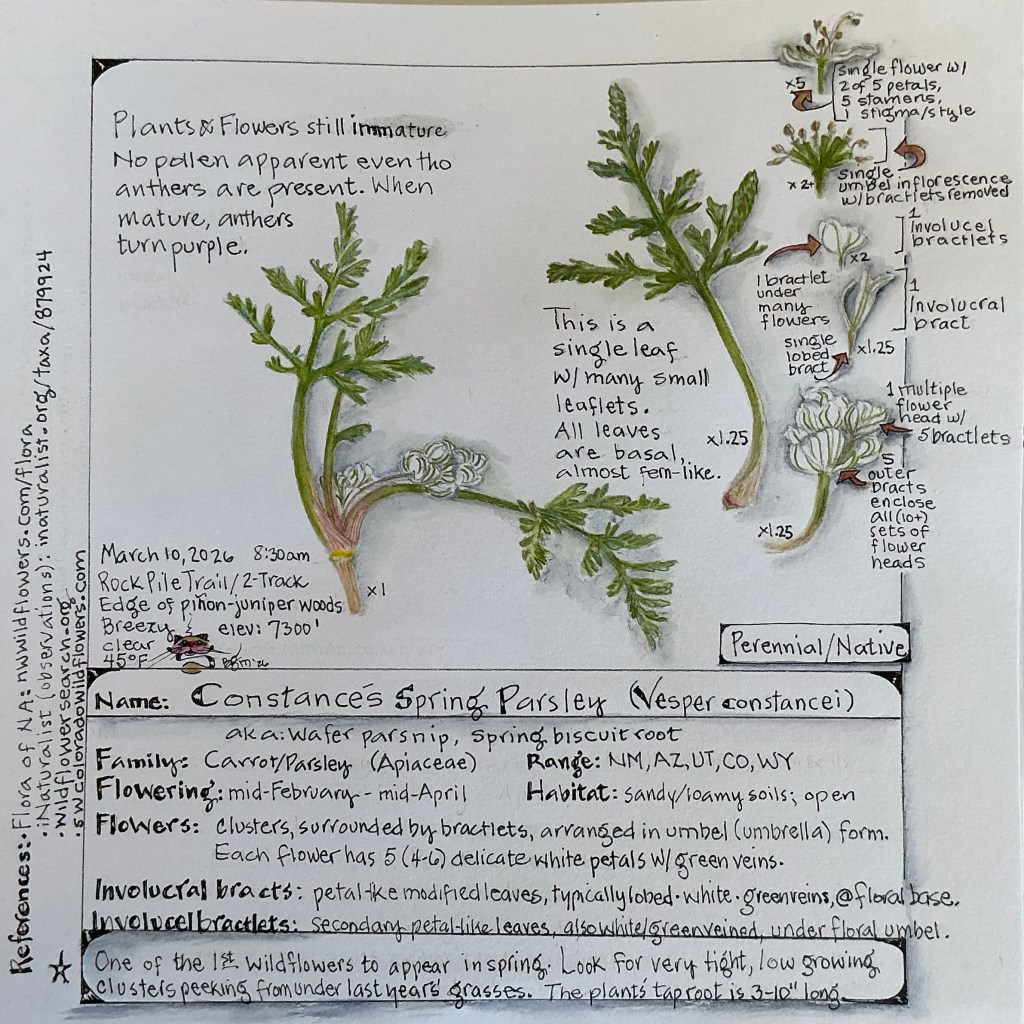 Plants & Flowers still immature
No pollen apparent even tho
anthers are present. When
mature, anthers
turn purple.
single flower w/
2 of 5 petals,
5 stamens,
1 stigma/style
x5
single
umbel inflorescence
w/bractlets removed
x2+
1
Involucel
bractlets
x2
1 bractlet
under
many
flowers
1
Involucral
bract
single
lobed
bract
x1.25
This is a
single leaf
w/ many small
leaflets.
All leaves
are basal,
almost fern-like.
x1.25
1 multiple
flower
head w/
5 bractlets
5
outer
bracts
enclose
all (10+)
sets of
flower
heads
x1.25
March 10, 2026 8:30am
Rock Pile Trail/2-Track
Edge of piñon-juniper woods
Breezy elev: 7300'
clear
45°F
x1
Perennial/Native
Name: Constance's Spring Parsley (Vesper constancei)
aka: Wafer parsnip, Spring biscuitroot
Family: Carrot/Parsley (Apiaceae) Range: NM, AZ, UT, CO, WY
Flowering: mid-February - mid-April Habitat: sandy/loamy soils; open
Flowers: clusters, surrounded by bractlets, arranged in umbel (umbrella) form.
Each flower has 5 (4-6) delicate white petals w/ green veins.
Involucral bracts: petal-like modified leaves, typically lobed · white · greenveins, @ floral base.
Involucel bractlets: secondary petal-like leaves, also white/green veined, under floral umbel.
One of the 1st wildflowers to appear in spring. Look for very tight, low growing
clusters peeking from under last years' grasses. The plant's taproot is 3-10" long.
References: · Flora of NA: nwwildflowers.com/flora
· iNaturalist (observations): inaturalist.org/taxa/879924
· Wildflowersearch.org
· swcoloradowildflowers.com